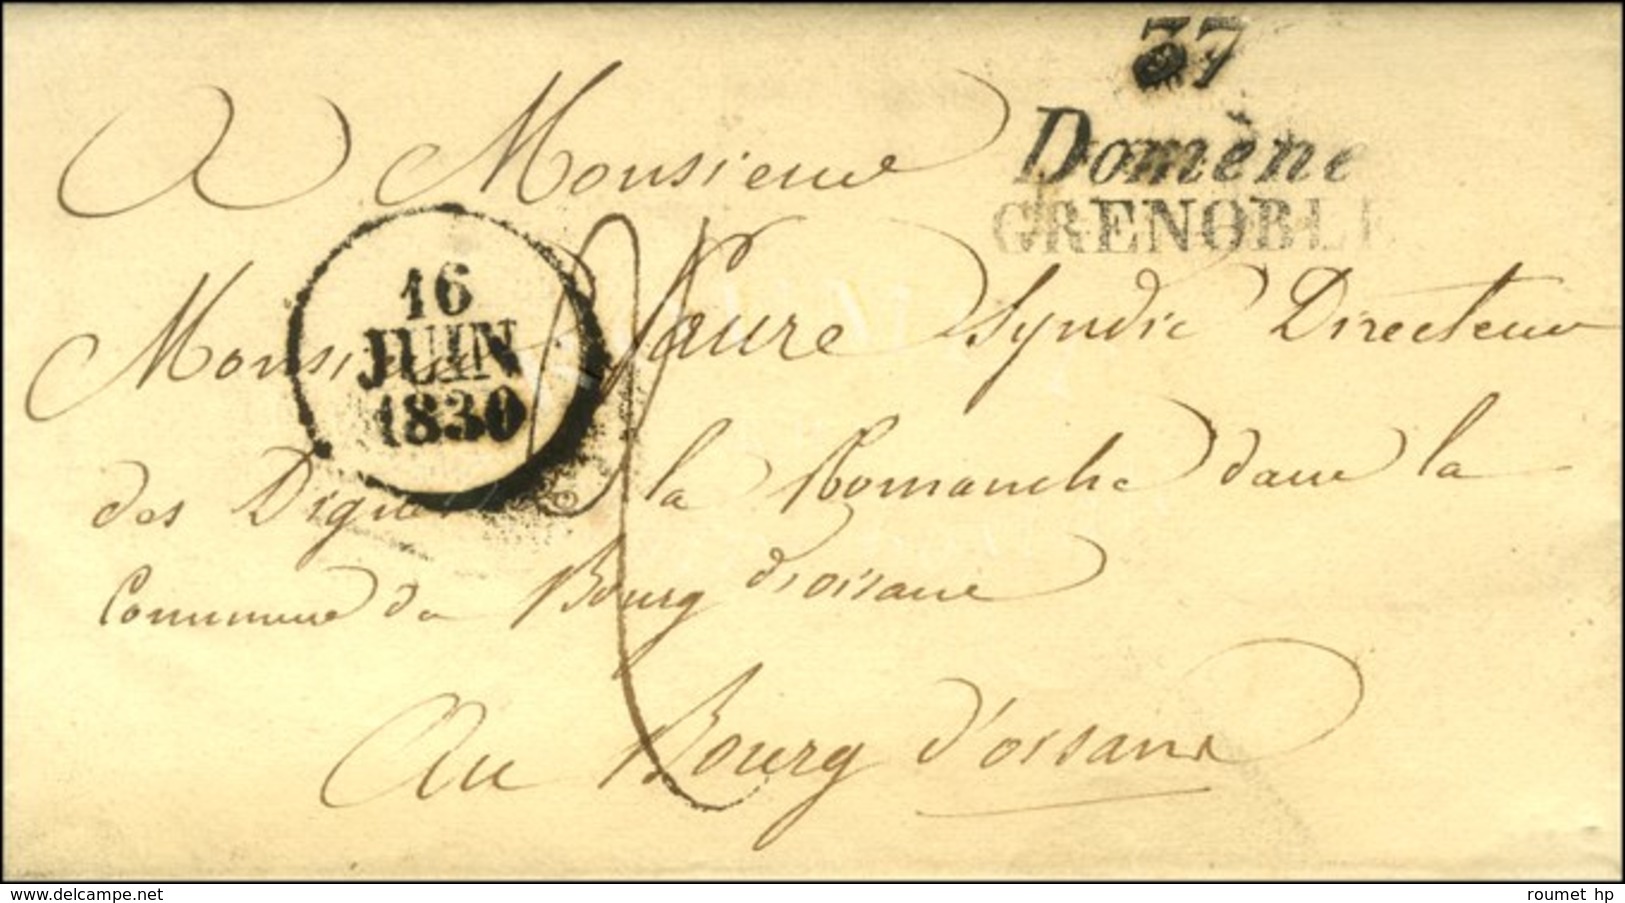 37
Domène
GRENOBLE
A Monsieur
Monsieur Faure Syndic Directeur
16
JUIN
1830
des Digues de la Romanche dans la
Commune du Bourg d'oisans
Au Bourg d'oisans
www.delcampe.net
roumet hp